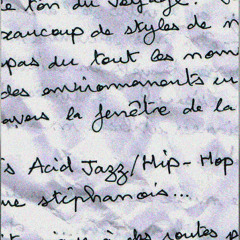 le ton du voyage.
beaucoup de styles de
pas du tout les nom
des environnements u
avers la fenêtre de la
s Acid Jazz/Hip-Hop
ue stéphanois...
à des routes p